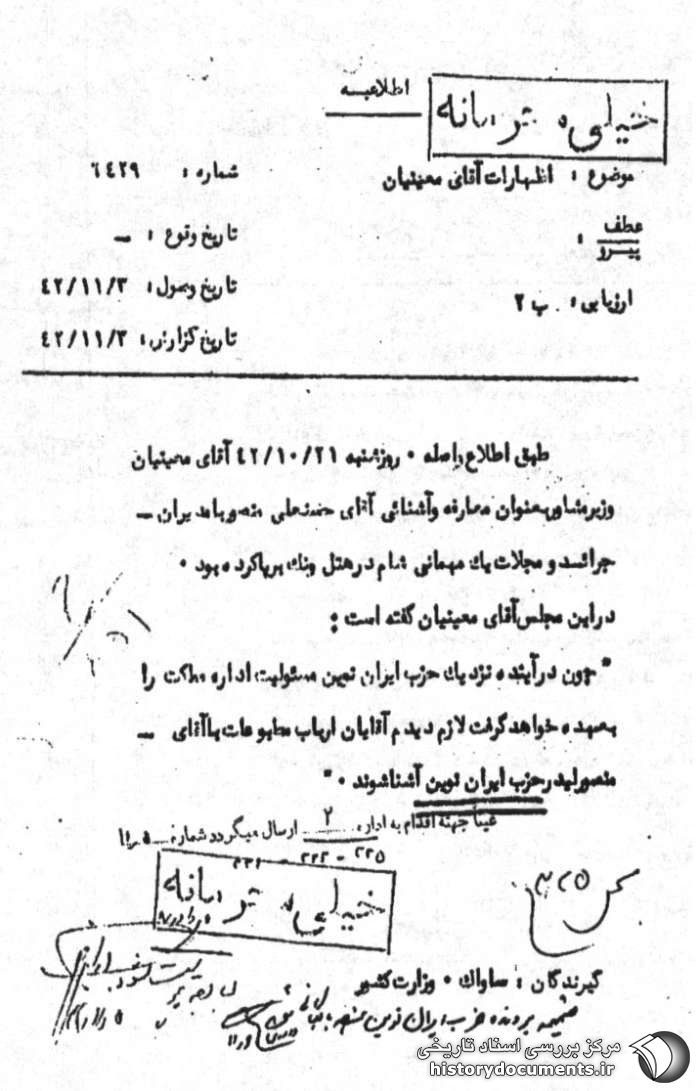 اطلاعیه
خیلی محرمانه
موضوع : اظهارات آقای معینیان
شماره : ٦٤٢٩
عطف
پیرو :
تاریخ وقوع : ــ
تاریخ وصول : ٤٢/١١/٣
ارزیابی : ب ٢
تاریخ گزارش : ٤٢/١١/٣
طبق اطلاع واصله ٠ روز شنبه ٤٢/١٠/٢١ آقای معینیان
وزیر مشاور بعنوان معارفه وآشنائی آقای حسنعلی منصور با مدیران ــ
جرائد و مجلات یک مهمانی شام در هتل ونک برپا کرده بود ٠
در این مجلس آقای معینیان گفته است :
" چون در آینده نزدیک حزب ایران نوین مسئولیت اداره مملکت را
بعهده خواهد گرفت لازم دیدم آقایان ارباب مطبوعات با آقای ــ
منصور لیدر حزب ایران نوین آشنا شوند ٠ "
عیناً جهت اقدام به اداره ٢ ارسال میگردد شماره
٢٢٥ - ٢٢٢ -
خیلی محرمانه
٣٢٥
گیرندگان : ساواک ٠ وزارت کشور
ضمیمه پرونده حزب ایران نوین
مرکز بررسی اسناد تاریخی
historydocuments.ir